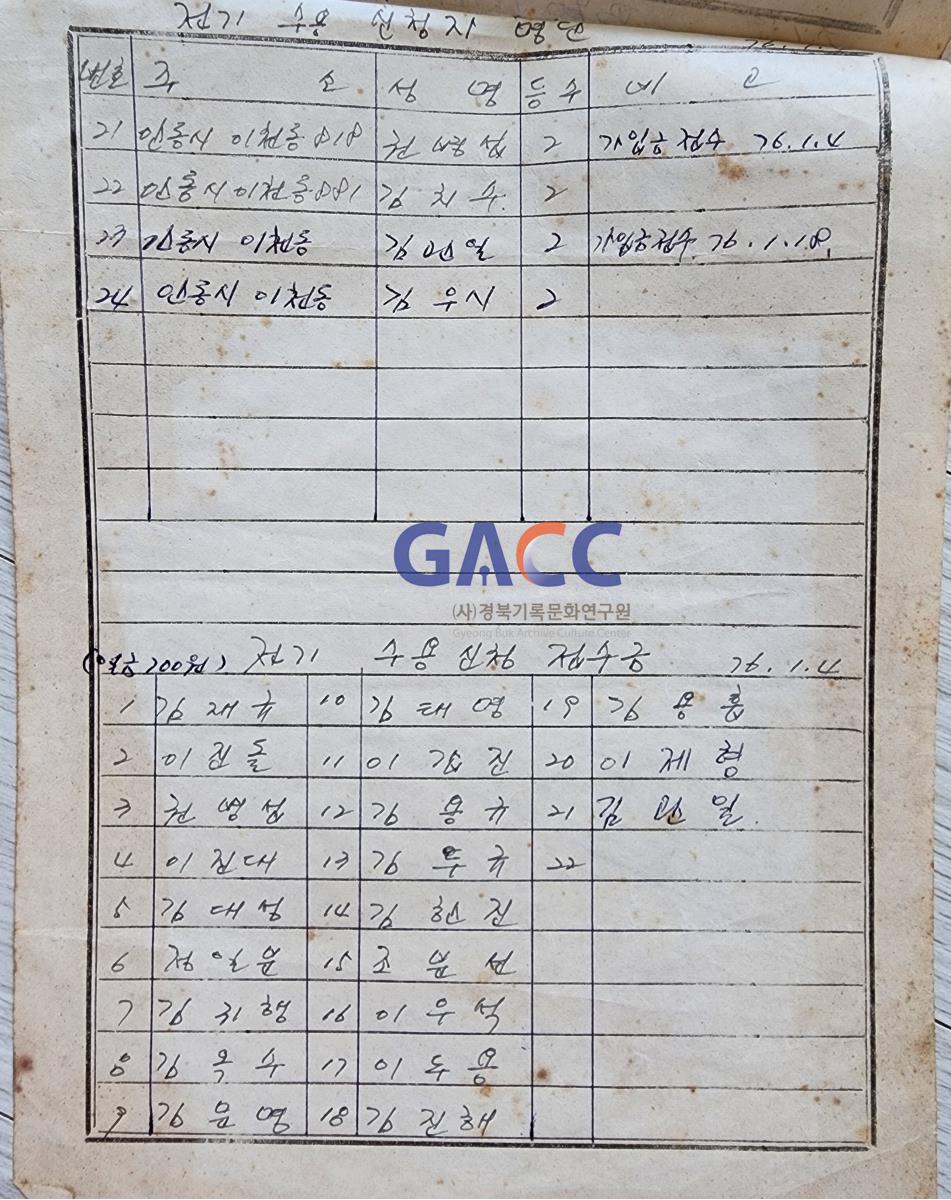 전기 수용 신청자 명단
번호 주 소 성 명 등 수 비 고
21 안동시 이천동 818 권 병 섭 2 가입금 접수 76.1.4
22 안동시 이천동 881 김 치 수 2
23 안동시 이천동 김 만 일 2 가입금 접수 76.1.18
24 안동시 이천동 김 우 시 2
GACC
(사)경북기록문화연구원
Gyeong Buk Archive Culture Center
(일금 700원) 전기 수용 신청 접수금 76.1.4
1 김 재 규 10 김 태 영 19 김 용 흡
2 이 진 돌 11 이 갑 진 20 이 제 형
3 권 병 섭 12 김 용 규 21 김 만 일
4 이 진 대 13 김 두 규 22
5 김 대 성 14 김 헌 진
6 정 일 분 15 조 분 선
7 김 치 행 16 이 우 석
8 김 옥 수 17 이 두 용
9 김 윤 영 18 김 진 해